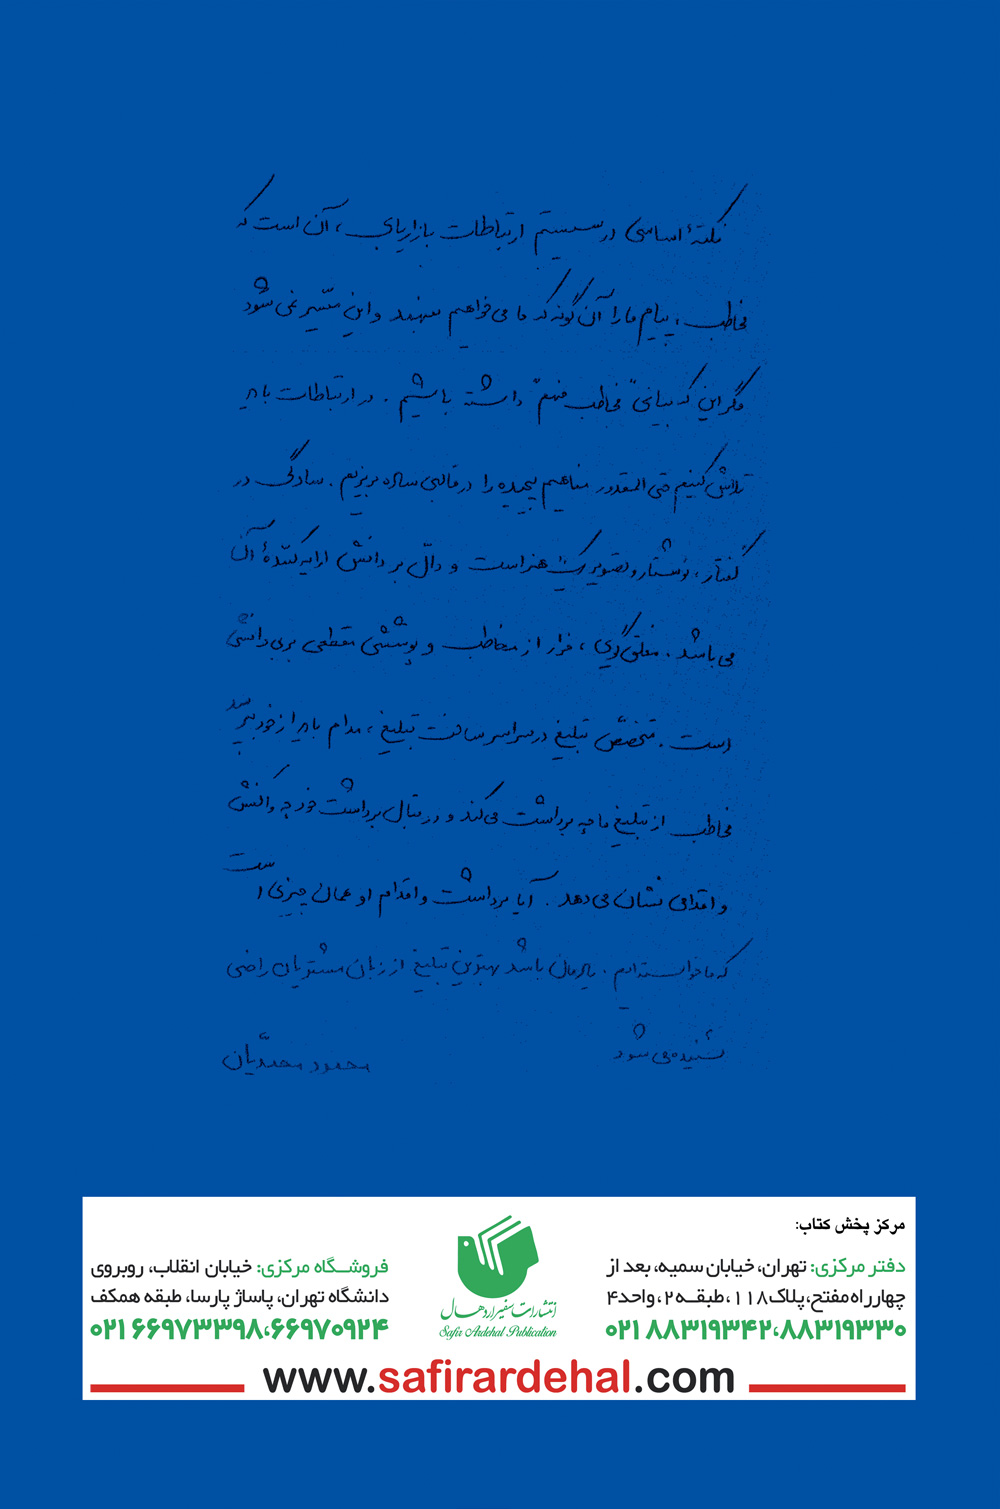 نکتهٔ اساسی در سیستم ارتباطات بازاریابی، آن است که
مخاطب، پیام ما را آن گونه که ما می‌خواهیم بفهمد و این میّسر نمی‌شود
مگر این که بیانی "مخاطب فهم" داشته باشیم. در ارتباطات باید
تلاش کنیم حتی المقدور مفاهیم پیچیده را در قالبی ساده بریزیم. سادگی در
گفتار، نوشتار و تصویر یک هنر است و دالّ بر دانش ارایه کنندهٔ آن
می‌باشد. مغلق گویی، فرار از مخاطب و پوششی مقطعی بر بی‌دانشی
است. متخصّص تبلیغ در سراسر ساخت تبلیغ، مدام باید از خود بپرسد
مخاطب از تبلیغ ما چه برداشت می‌کند و در قبال برداشت خود چه واکنش
و اقدامی نشان می‌دهد. آیا برداشت و اقدام او همان چیزی است
که ما خواسته‌ایم. یادمان باشد بهترین تبلیغ از زبان مشتریان راضی
شنیده می‌شود
محمود محمدیان
مرکز پخش کتاب:
دفتر مرکزی: تهران، خیابان سمیه، بعد از
چهارراه مفتح، پلاک ۱۱۸، طبقه ۲، واحد ۴
۰۲۱ ۸۸۳۱۹۳۴۲،۸۸۳۱۹۳۳۰
انتشارات سفیر اردهال
Safir Ardehal Publication
فروشگاه مرکزی: خیابان انقلاب، روبروی
دانشگاه تهران، پاساژ پارسا، طبقه همکف
۰۲۱ ۶۶۹۷۳۳۹۸،۶۶۹۷۰۹۲۴
www.safirardehal.com